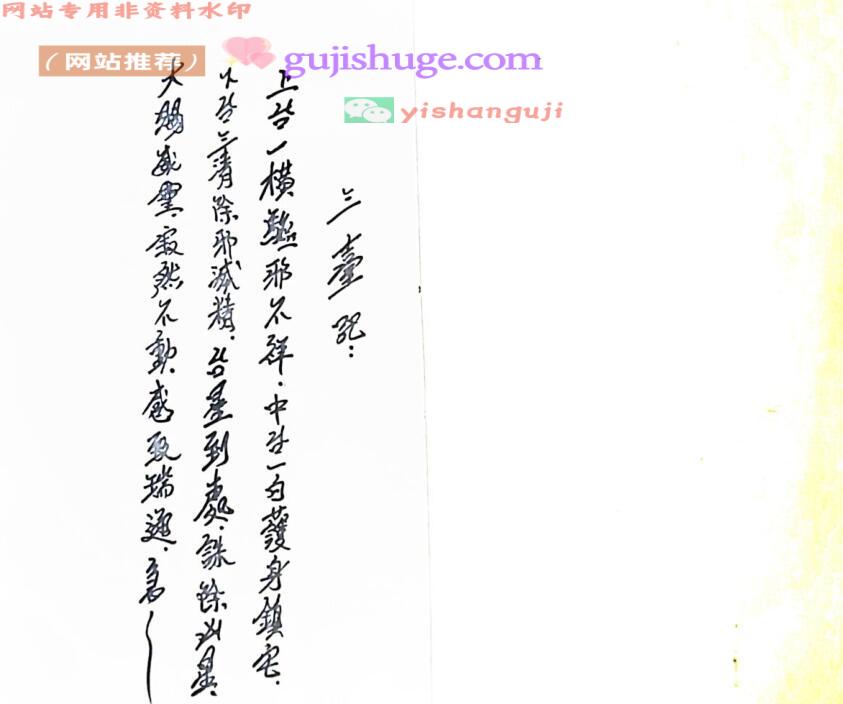 网站专用非资料水印
（网站推荐）
gujishuge.com
yishanguji
三臺咒：
上台一橫驅邪不祥．中台一白護身鎮宅．
下台三清除邪滅精．台星到處．誅除凶星．
大賜威靈．寂然不動．感致瑞通．急